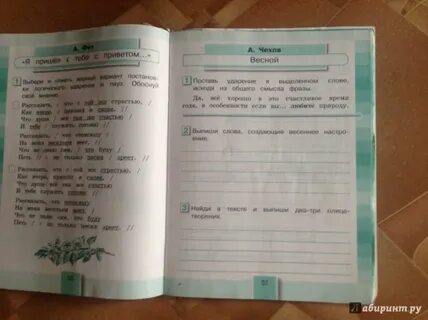 А. Фет
«Я пришёл к тебе с приветом...»
1 Выбери и отметь верный вариант постановки логического ударения и пауз. Обоснуй своё мнение.
Рассказать, что с той же страстью, /
Как вчера, / пришёл я снова, /
Что душа / всё так же счастью
И тебе служить готова; //
Рассказать, / что отовсюду /
На меня весельем веет, /
Что не знаю сам, / что буду
Петь,
только песня / зреет. //
Рассказать, что с той же страстью,
Как вчера, пришёл я снова, /
Что душа всё так же счастью
И тебе служить готова;
Рассказать, что отовсюду
На меня весельем веет,
Что не знаю сам, что буду
Петь,
только песня зреет. //
А. Чехов
Весной
1 Поставь ударение в выделенном слове,
исходя из общего смысла фразы.
Да, всё хорошо в это счастливое время
года, в особенности если вы... любите природу.
2 Выпиши слова, создающие весеннее настро-
ение.
3 Найди в тексте и выпиши два-три олице-
творения.
57
Лабиринт.ру